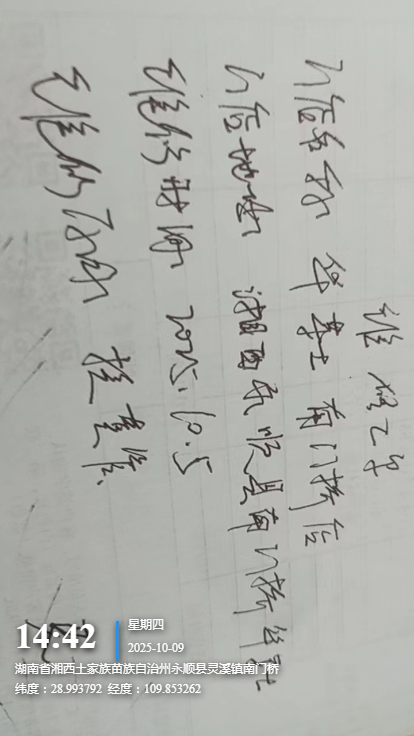 维修单
门店名称 华莱士南门桥店
门店地址 湘西永顺县南门桥华莱
维修时间 2025.10.5
维修
14:42
星期四
2025-10-09
湖南省湘西土家族苗族自治州永顺县灵溪镇南门桥
纬度：28.993792 经度：109.853262